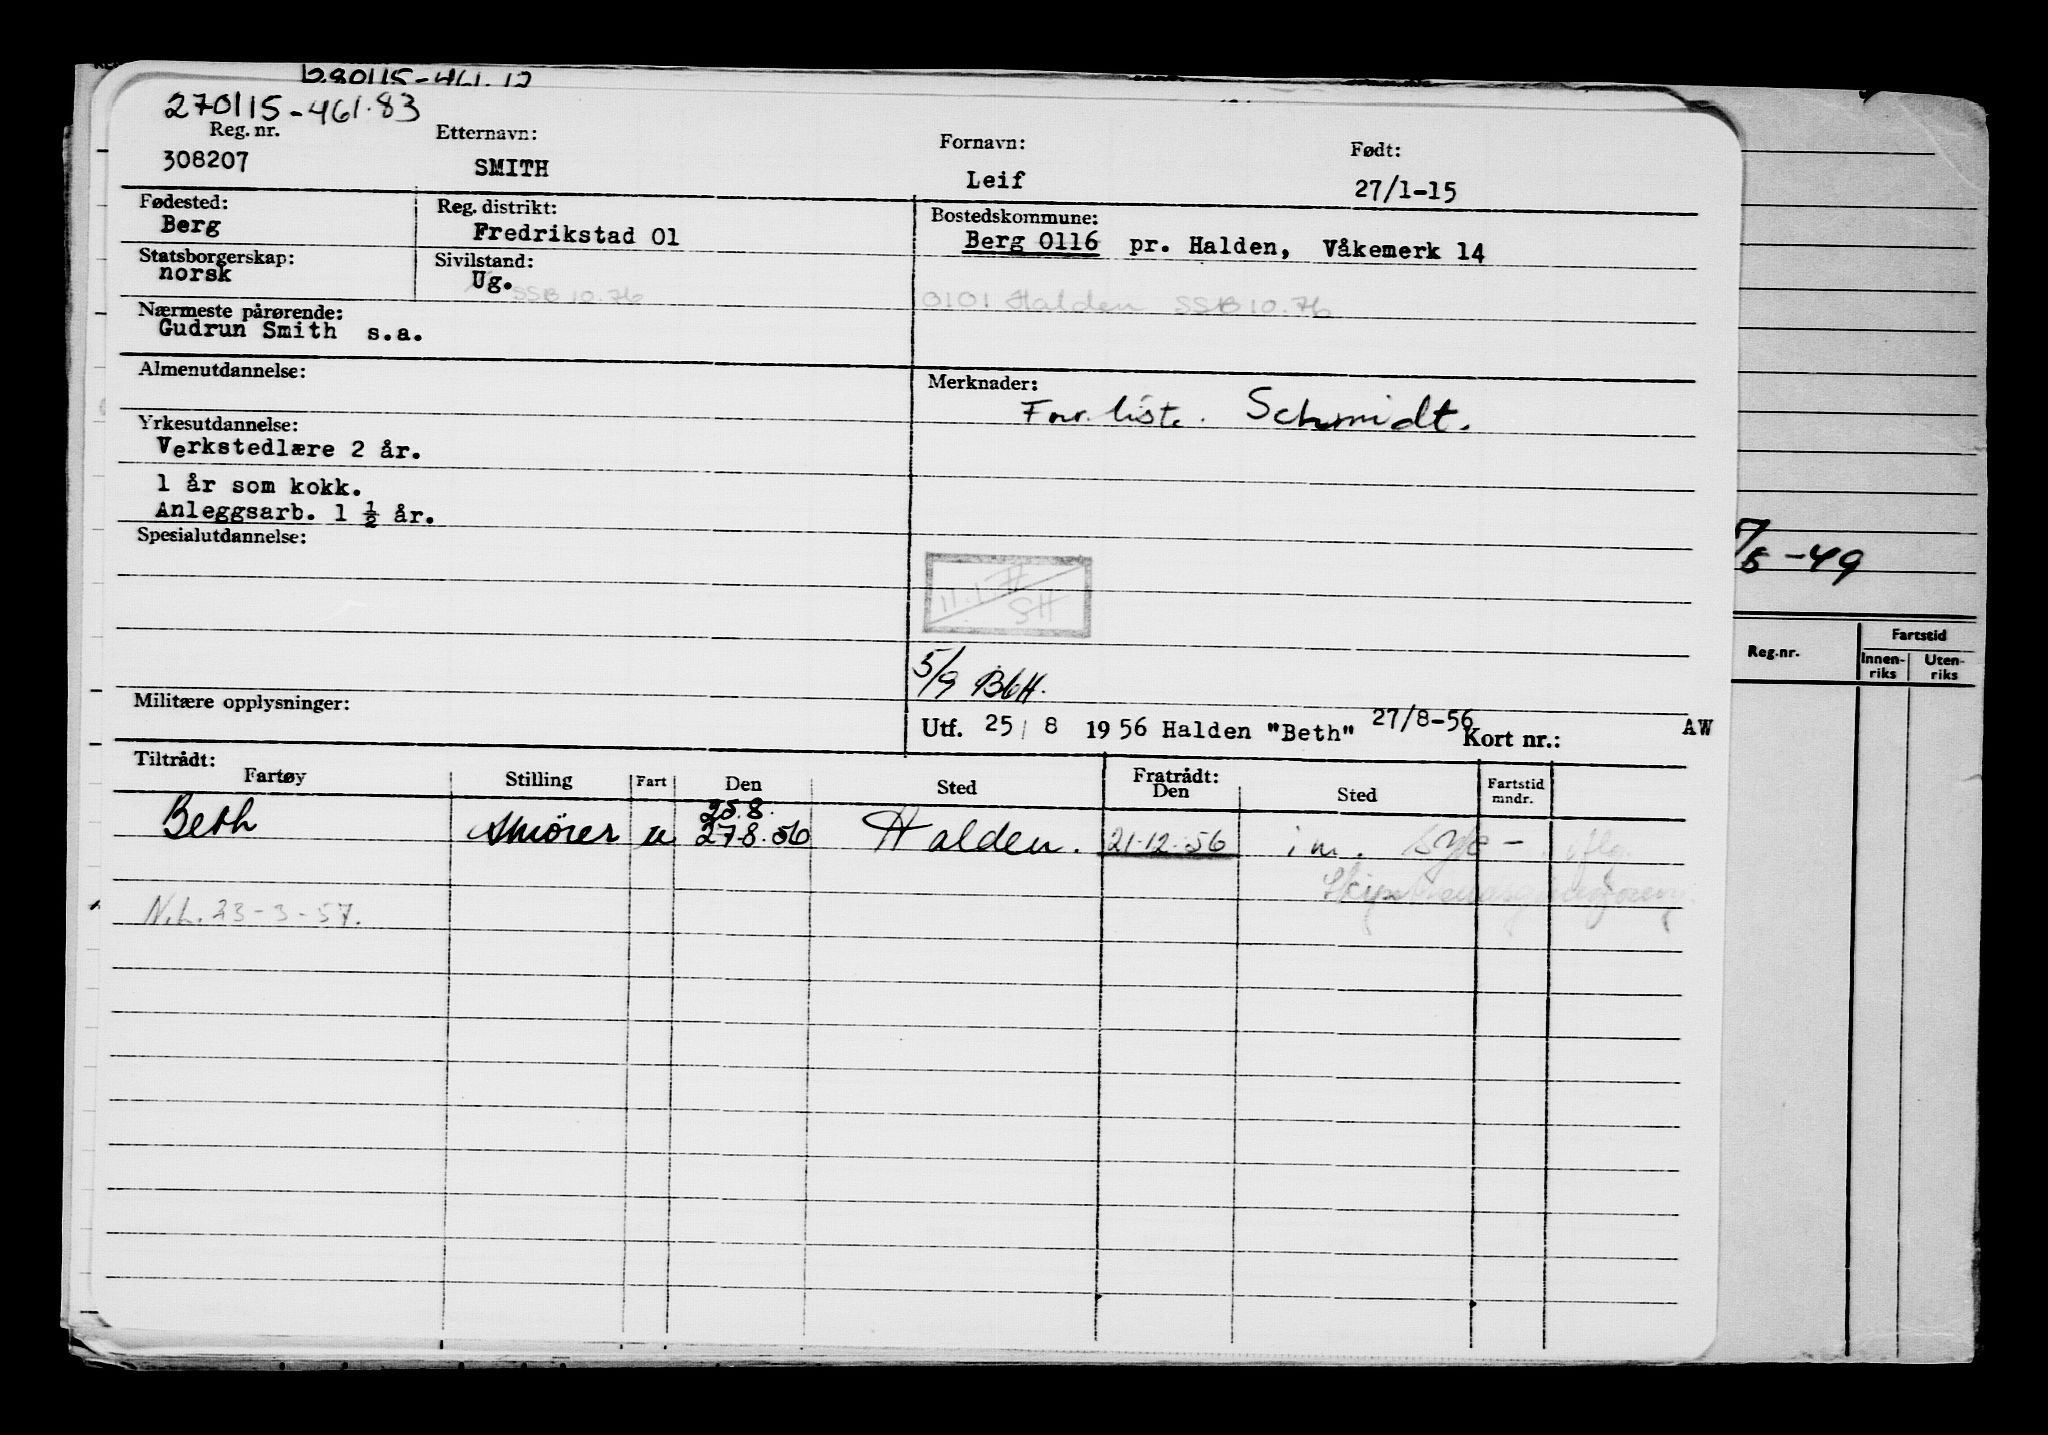 280115-461.12
270115-461.83
Reg. nr. Etternavn: Fornavn: Født:
308207 SMITH Leif 27/1-15
Fødested: Reg. distrikt: Bostedskommune:
Berg Fredrikstad 01 Berg 0116 pr. Halden, Våkemerk 14
Statsborgerskap: Sivilstand:
norsk Ug.
SSB 10.76 0101 Halden SSB 10.76
Nærmeste pårørende:
Gudrun Smith s.a.
Almenutdannelse: Merknader:
Forr. liste. Schmidt.
Yrkesutdannelse:
Verkstedlære 2 år.
1 år som kokk.
Anleggsarb. 1 ½ år.
Spesialutdannelse:
SH
5/9 BbH.
Militære opplysninger:
Utf. 25/ 8 1956 Halden "Beth" 27/8-56 Kort nr.: AW
Tiltrådt: Fratrådt:
Fartøy Stilling Fart Den Sted Den Sted Fartstid mndr.
25.8.
Beth Smører u 27.8.56 Halden. 21.12.56 i m. syk-
N.L. 23-3-57.
/5-49
Reg.nr. Fartstid
Innen-riks Uten-riks